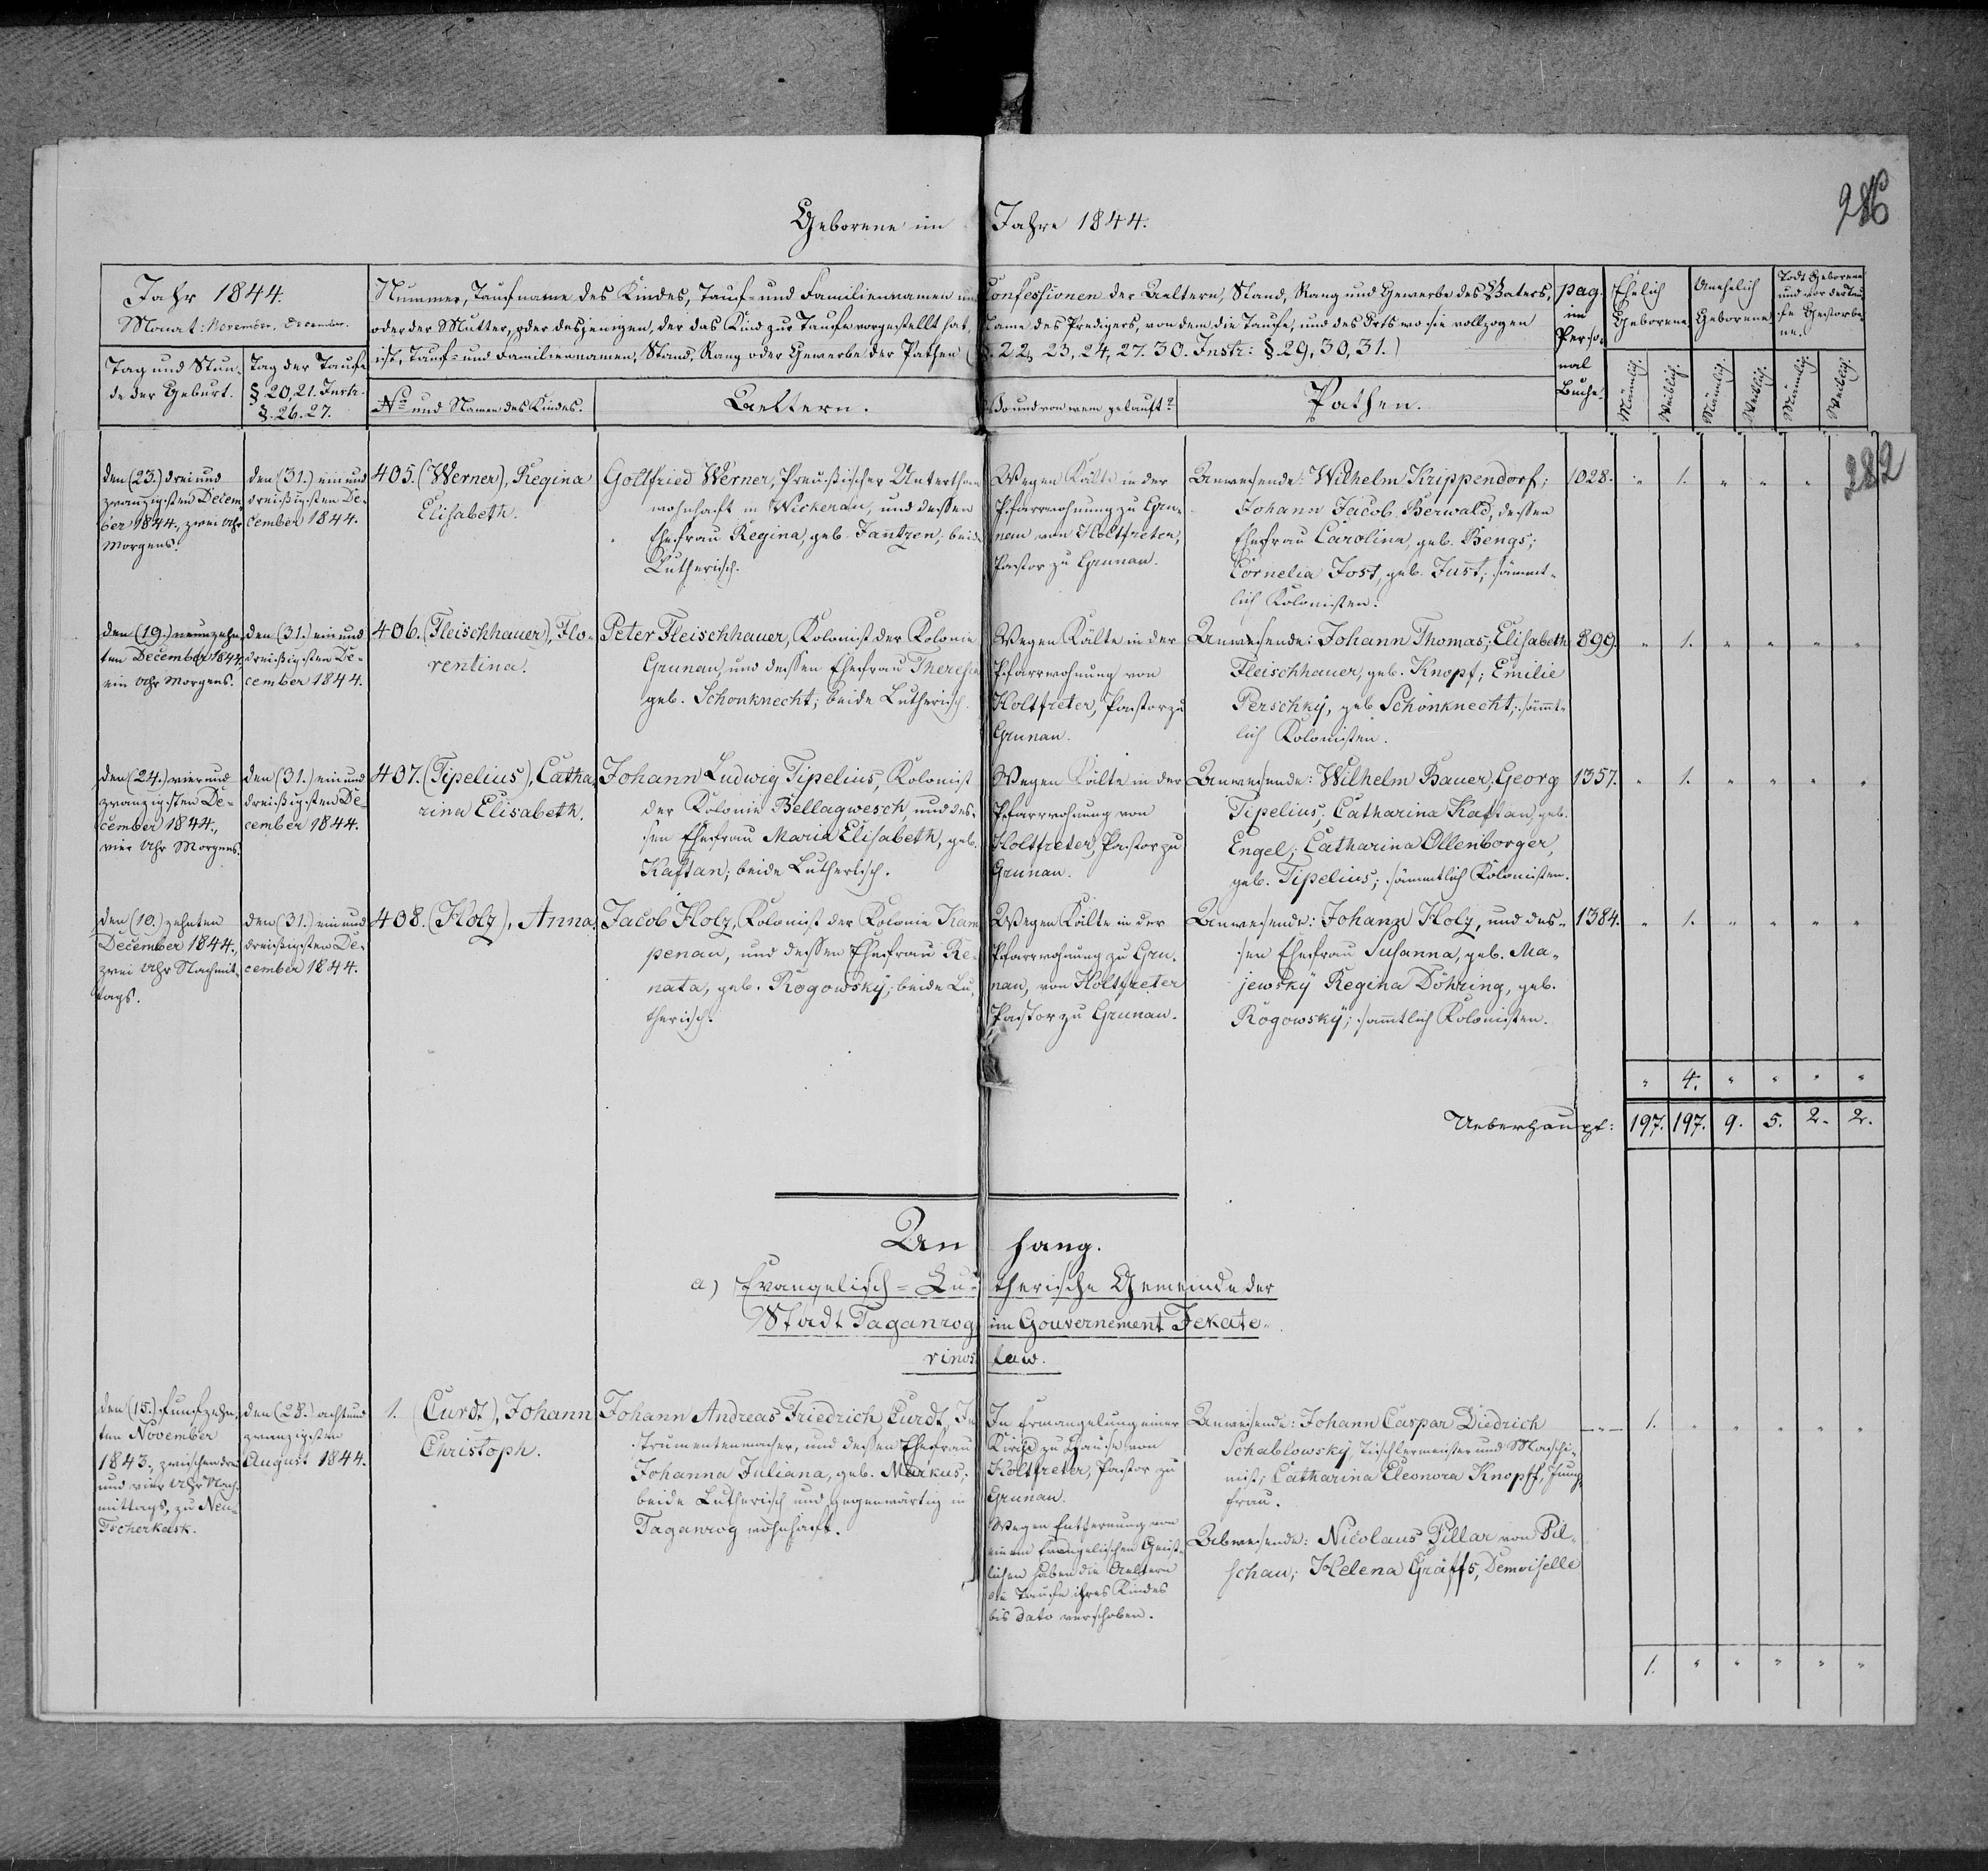 286
Geborene im Jahre 1844.
Jahr 1844.
Monat: November, December.
Tag und Stun-
de der Geburt.
Tag der Taufe
§ 20, 21. Instr.
§. 26. 27.
Nummer, Taufname des Kindes, Tauf- und Familiennamen und Confessionen der Aeltern, Stand, Rang und Gewerbe des Vaters,
oder der Mutter, oder desjenigen, der das Kind zur Taufe vorgestellt hat, Name des Predigers, von dem die Taufe, und des Orts wo sie vollzogen
ist, Tauf- und Familiennamen, Stand, Rang oder Gewerbe der Pathen (§. 22, 23, 24, 27. 30. Instr: § 29, 30, 31.)
No und Namen des Kindes.
Aeltern.
Wo und von wem getauft?
Pathen.
pag.
im
Perso-
nal
Buche.
Ehelich
Geborene
Unehelich
Geborene
Todt Geborene
und vor der Tau-
fe Gestorbe-
ne.
Männlich.
Weiblich.
Männlich.
Weiblich.
Männlich.
Weiblich.
282
den (23.) drei und
zwanzigsten Decem-
ber 1844., zwei Uhr
Morgens.
den (31.) ein und
dreißigsten De-
cember 1844.
405. (Werner), Regina
Elisabeth.
Gottfried Werner, Preußischer Unterthan
wohnhaft in Wickerau, und dessen
Ehefrau Regina, geb. Jantzen; beide
Lutherisch.
Wegen Kälte in der
Pfarrwohnung zu Gru-
nau von Holtfreter,
Pastor zu Grunau.
Anwesende: Wilhelm Krippendorf;
Johann Jacob Berwald, dessen
Ehefrau Carolina, geb. Bengs;
Cornelia Jost, geb. Just; sämmt-
lich Kolonisten.
1028. " 1. " " "
den (19.) neunzehn-
ten December 1844
ein Uhr Morgens.
den (31.) ein und
dreißigsten De-
cember 1844.
406. (Fleischhauer), Flo-
rentina.
Peter Fleischhauer, Kolonist der Kolonie
Grunau, und dessen Ehefrau Theresia
geb. Schönknecht; beide Lutherisch.
Wegen Kälte in der
Pfarrwohnung von
Holtfreter, Pastor zu
Grunau.
Anwesende: Johann Thomas; Elisabeth
Fleischhauer, geb. Knopf; Emilie
Perschky, geb. Schönknecht; sämmt-
lich Kolonisten.
899. " 1. " " " "
den (24.) vier und
zwanzigsten De-
cember 1844.,
vier Uhr Morgens.
den (31.) ein und
dreißigsten De-
cember 1844.
407. (Tipelius), Catha-
rina Elisabeth.
Johann Ludwig Tipelius, Kolonist
der Kolonie Bellagwesch, und des-
sen Ehefrau Maria Elisabeth, geb.
Kaftan; beide Lutherisch.
Wegen Kälte in der
Pfarrwohnung von
Holtfreter, Pastor zu
Grunau.
Anwesende: Wilhelm Bauer; Georg
Tipelius; Catharina Kaftan, geb.
Engel; Catharina Ollenborger,
geb. Tipelius; sämmtlich Kolonisten.
1357. " 1. " " " "
den (10.) zehnten
December 1844.,
zwei Uhr Nachmit-
tags.
den (31.) ein und
dreißigsten De-
cember 1844.
408. (Holz), Anna.
Jacob Holz, Kolonist der Kolonie Kam-
penau, und dessen Ehefrau Re-
nata, geb. Rogowsky; beide Lu-
therisch.
Wegen Kälte in der
Pfarrwohnung zu Gru-
nau, von Holtfreter
Pastor zu Grunau.
Anwesende: Johann Holz, und des-
sen Ehefrau Susanna, geb. Ma-
jewsky Regina Döhring, geb.
Rogowsky; sämmtlich Kolonisten.
1384. " 1. " " " "
" 4. " " " "
Ueberhaupt: 197. 197. 9. 5. 2. 2.
Anhang.
a) Evangelisch-Lutherische Gemeinde der
Stadt Taganrog im Gouvernement Jekate-
rinoslaw.
den (15.) funfzehn-
ten November
1843., zwischen drei
und vier Uhr Nach-
mittags, zu Neu-
Tscherkask.
den (28.) acht und
zwanzigsten
August 1844.
1. (Curdt), Johann
Christoph.
Johann Andreas Friedrich Curdt, In-
strumentenmacher, und dessen Ehefrau
Johanna Juliana, geb. Markus;
beide Lutherisch und gegenwärtig in
Taganrog wohnhaft.
In Ermangelung einer
Kirche zu Hause von
Holtfreter, Pastor zu
Grunau.
Wegen Entfernung von
einem Evangelischen Geist-
lichen haben die Aeltern
die Taufe ihres Kindes
bis dato verschoben.
Anwesende: Johann Caspar Diedrich
Schablowsky, Tischlermeister und Maschi-
nist; Catharina Eleonora Knopff, Jung-
frau.
Abwesende: Nicolaus Pillar von Pil-
schau; Helena Gräffs, Demoiselle
1. " " " " "
1. " " " " "